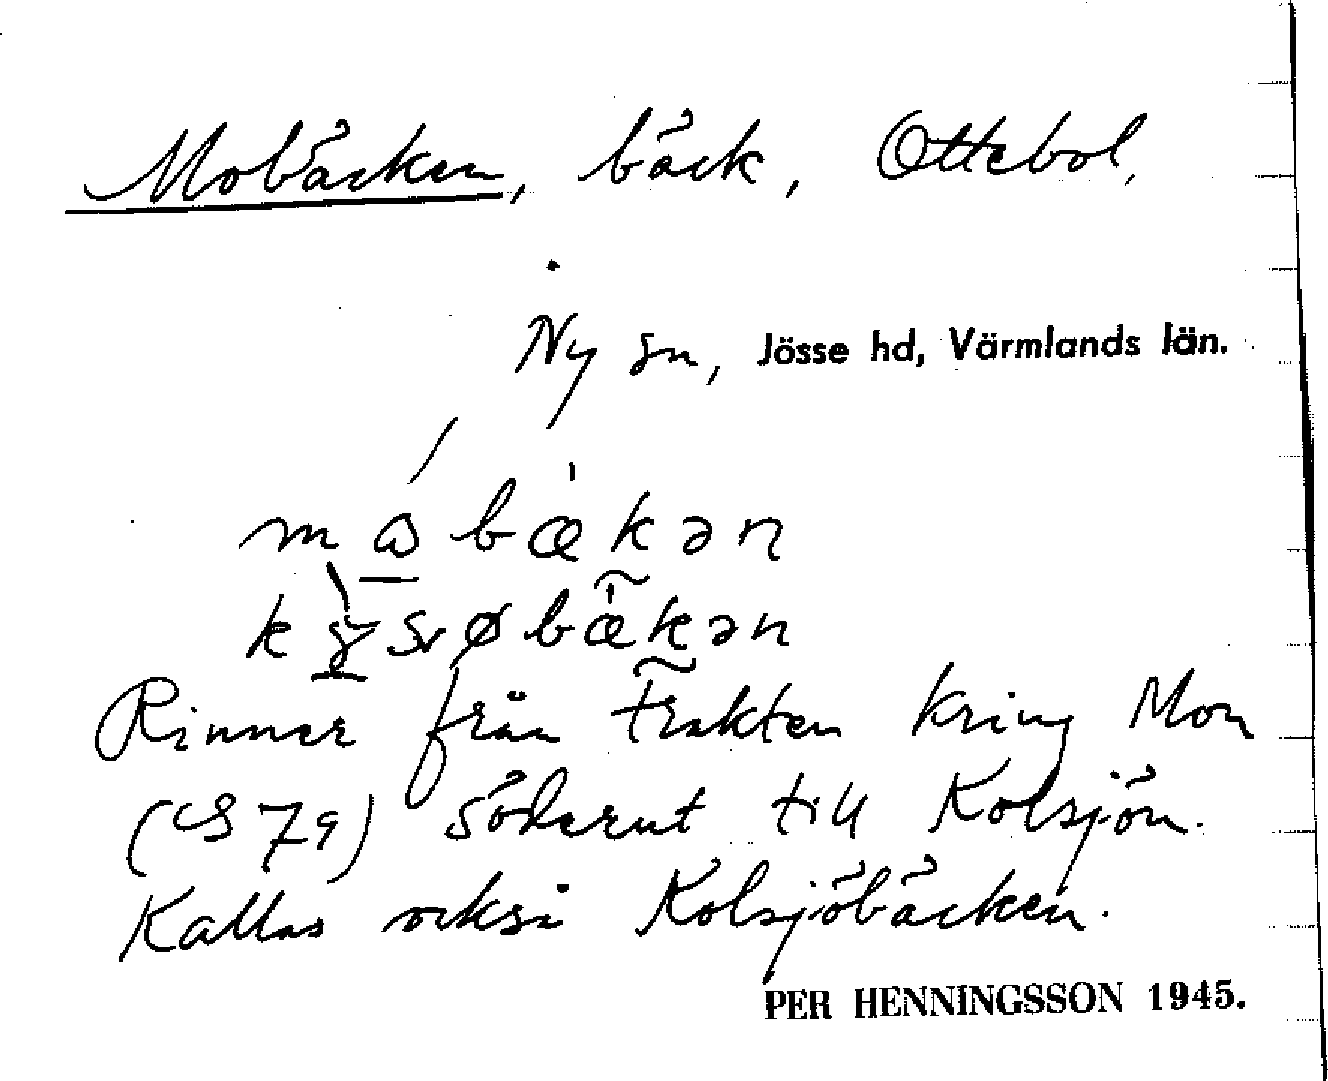 Mobäcken, bäck, Ottebol,
Ny sn, Jösse hd, Värmlands län.
Rinner från trakten kring Mon
(S 79) söderut till Kolsjön.
Kallas också Kolsjöbäcken.
PER HENNINGSSON 1945.